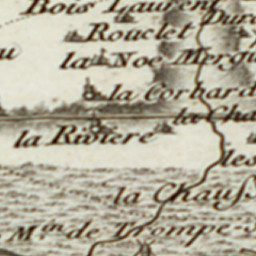 Bois Laurent
Rouclet
la Noe Mergu
la Corbard
la Cha
la Riviere
les
la Chauss
Min de Trompe-S